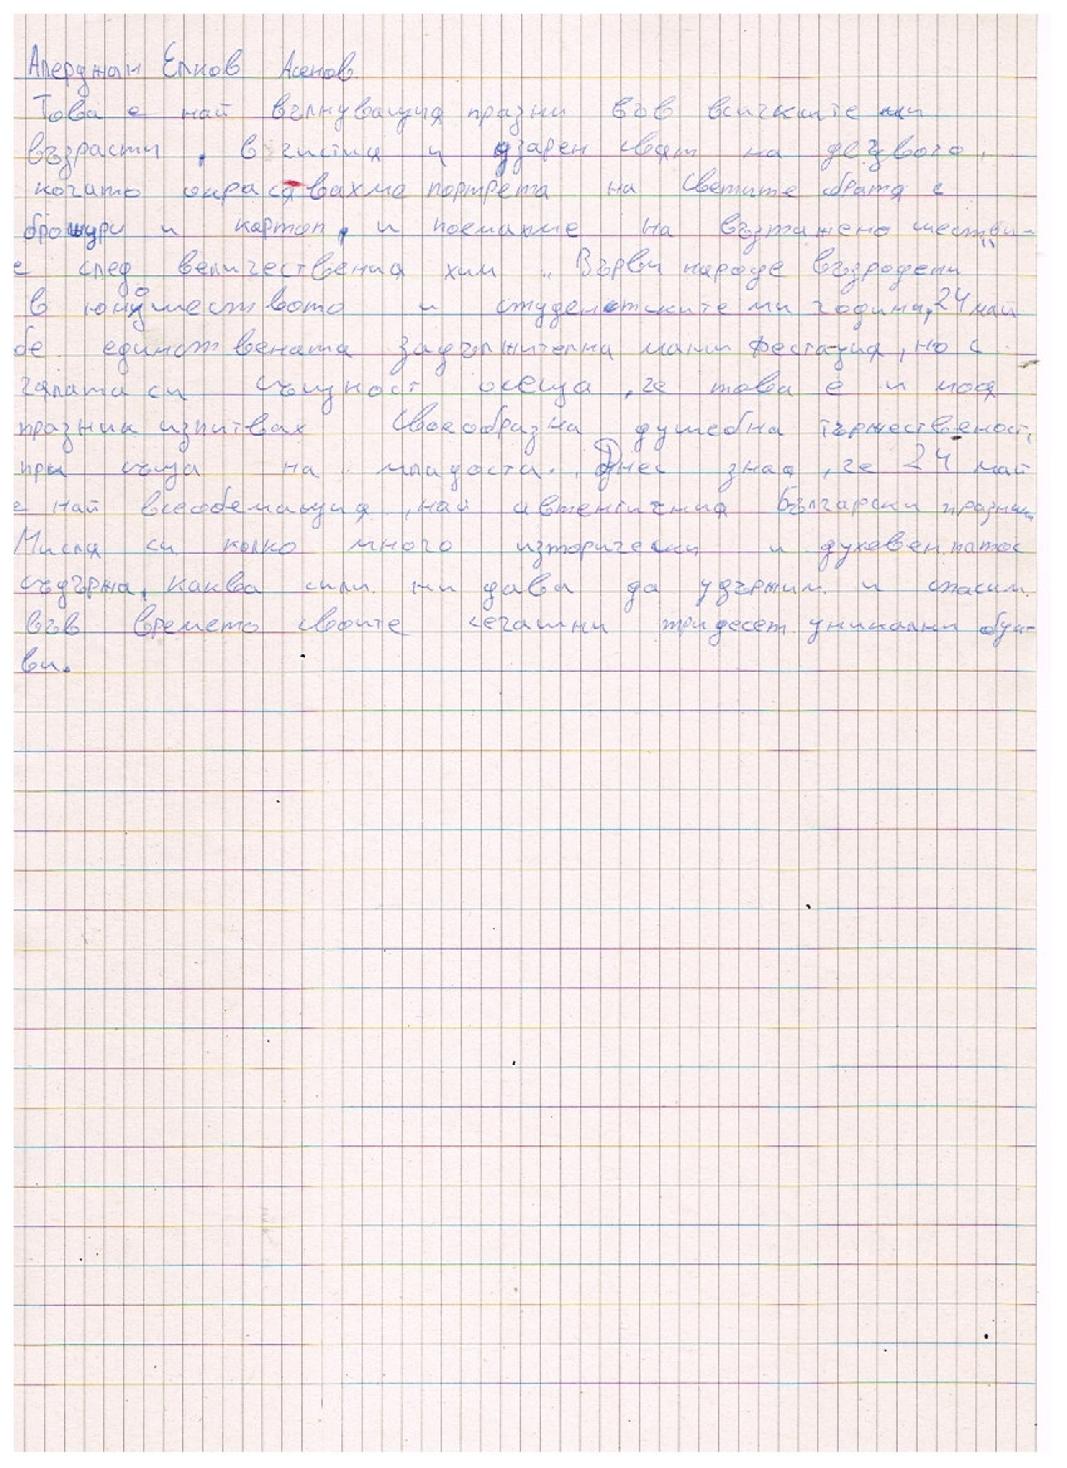 Алерджан Елков Асенов
Това е най вълнуващия празни във всичките ми
възрасти, в чистия и озарен свят на децвото,
когато украсявахме портрета на Светите братя с
брошури и картон, и поемахме на възтажено шестви-
е след величествения хим „Върви народе възродени"
в юношеството и студентските ми години, 24 май
бе единствената задължителна манифестация, но с
цялата си същност усеща, че това е и моя
празник изпитвах своеобразна душебна тържественост,
при съща на младоста. Днес зная, че 24 май
е най всеобемащия, най автентичния Български празник
Мисля си колко много изторически и духовен патос
съдържа, каква сили ни дава да удържим и спасим
във времето своите сегашни тридесет уникални букви
ви.